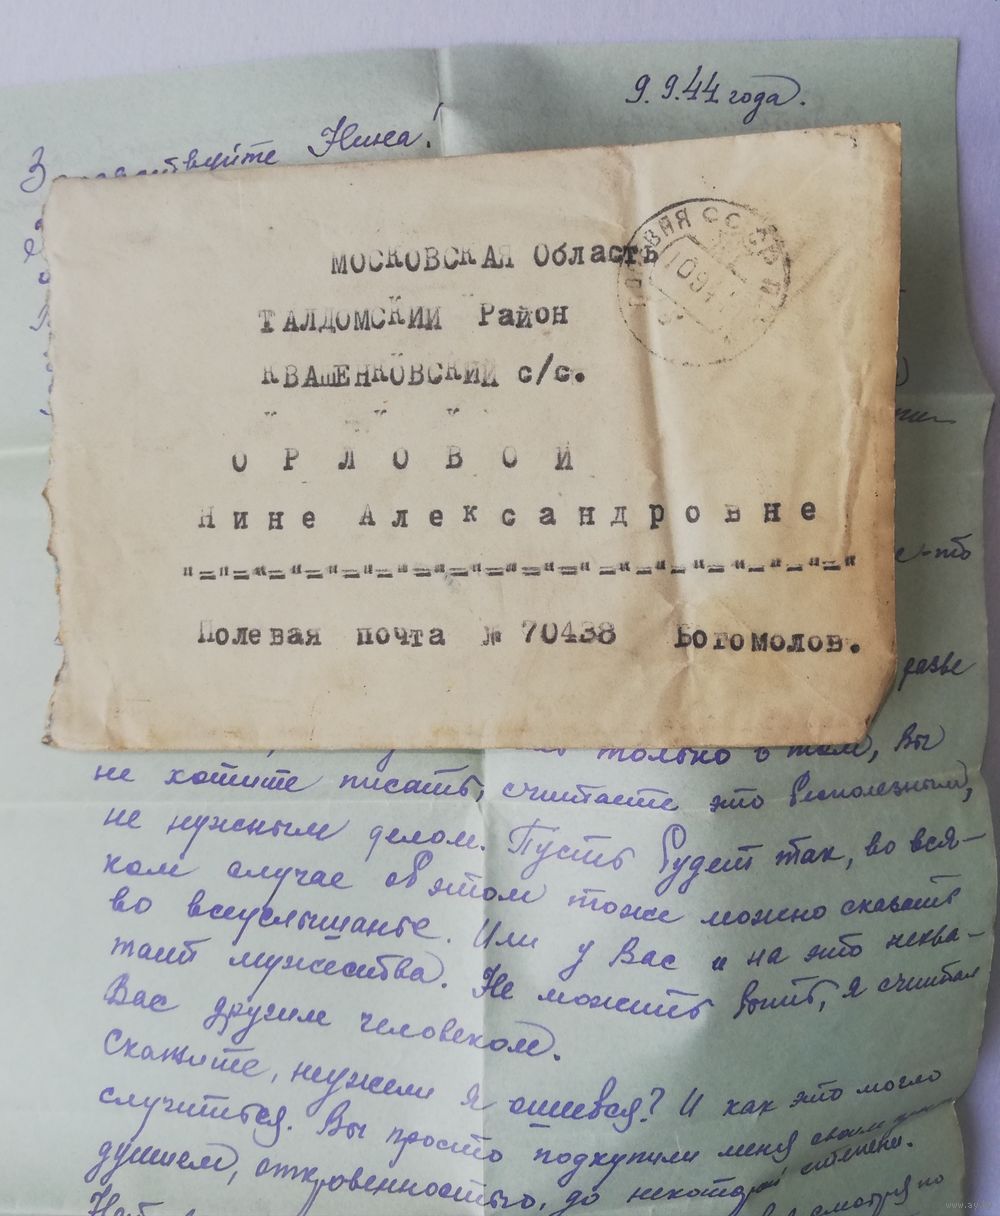 9.9.44 года.
Здравствуйте Нина!
МОСКОВСКАЯ Область
ТАЛДОМСКИЙ Район
КВАШЕНКОВСКИЙ с/с.
О Р Л О В О Й
Нине Александровне
"="="="="="="="="="="="="="="="="="="="
Полевая почта № 70438 Богомолов.
ПОЛЕВАЯ СССР
10944
е-то
разве
только о том, Вы
не хотите писать, считаете это бесполезным,
не нужным делом. Пусть будет так, во вся-
ком случае об этом тоже можно сказать
во всеуслышанье. Или у Вас и на это нехва-
тает мужества. Не можить быть, я считал
Вас другим человеком.
Скажите, неужели я ошибся? И как это могло
случиться. Вы просто подкупили меня своим
душием, откровенностью, до некоторой степени.
смотря по